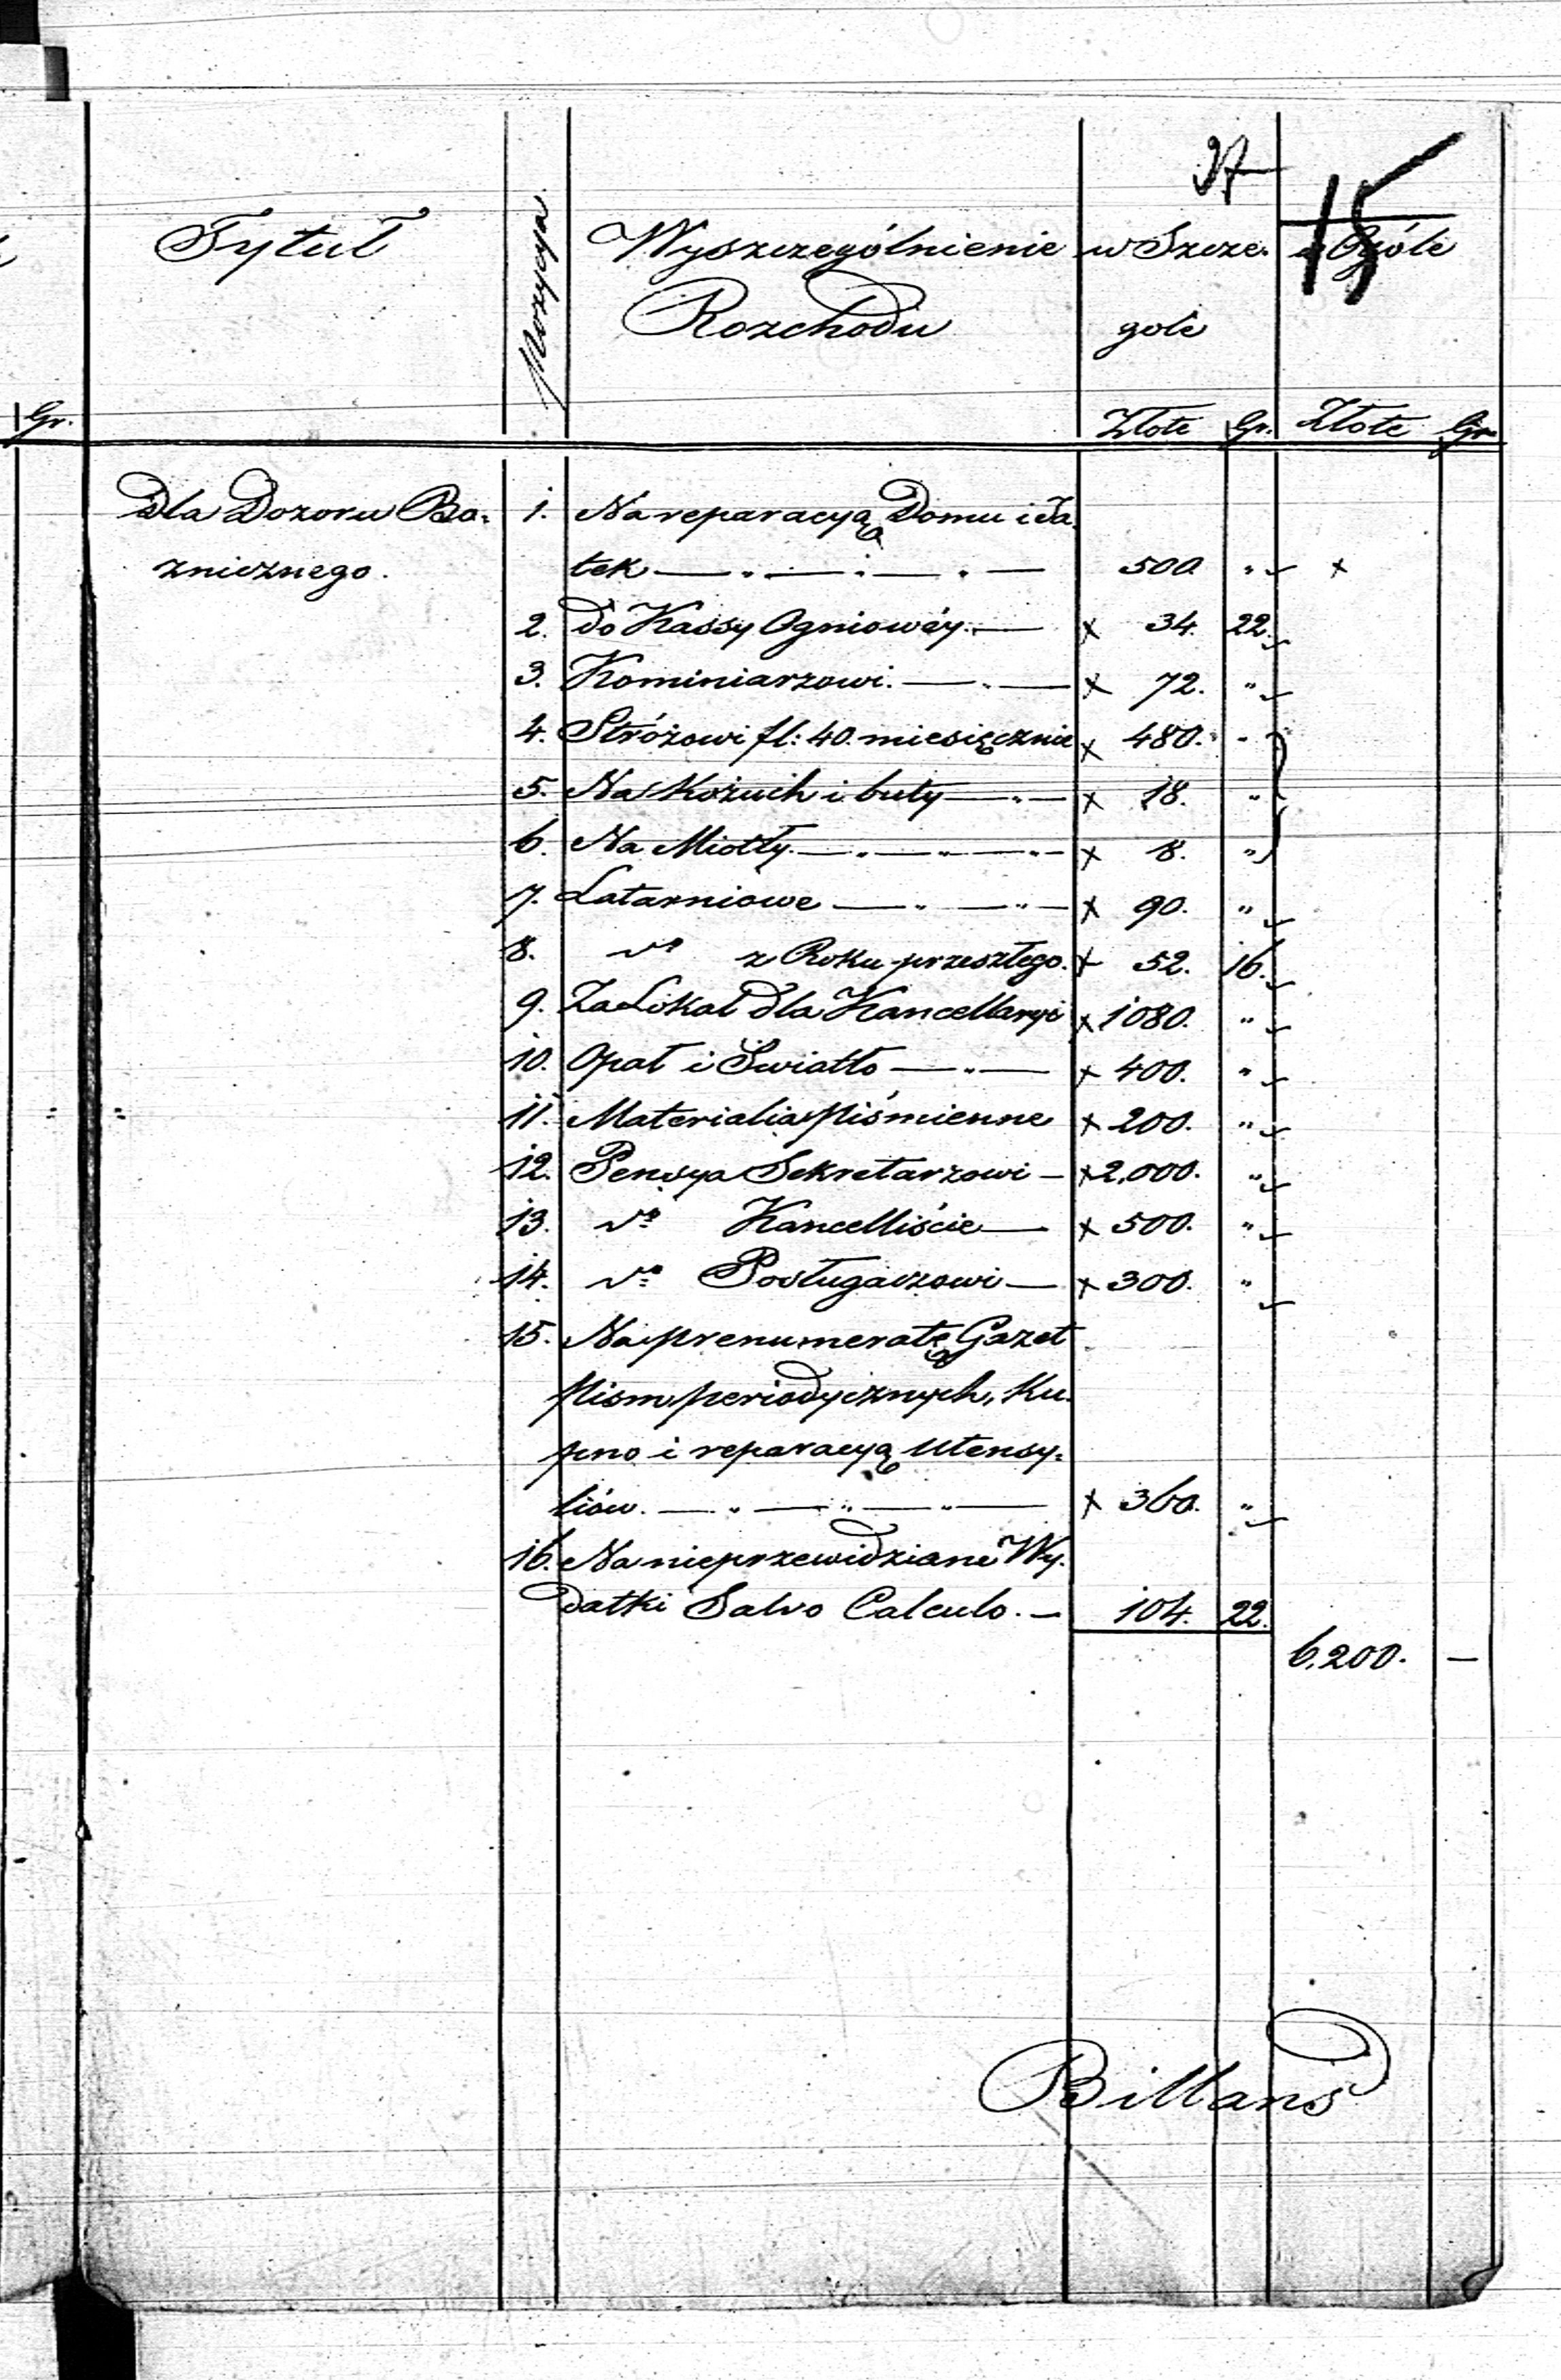 37
15
Tytuł
Pozycya
Wyszczególnienie
Rozchodu
w Szcze-
gole
w Ogóle
Gr.
Złote Gr. Złote Gr.
Dla Dozoru Bo-
znicznego.
1. Na reparacyą Domu i Ja
tek — " — " — " — 500 " x
2. do Kassy Ogniowéy. — x 34. 22.
3. Kominiarzowi. — " — x 72. "
4. Stróżowi fl: 40. miesięcznie x 480. "
5. Na Kożuch i buty — " — x 18. "
6. Na Miotły. — " — " — " — x 8. "
7. Latarniowe — " — " — x 90. "
8. do z Roku przeszłego. x 52. 16.
9. Za Lokal dla Kancellaryi x 1080. "
10. Opał i Światło — " — x 400. "
11. Materialia piśmienne x 200. "
12. Pensya Sekretarzowi — x 2,000. "
13. do Kancelliście — x 500. "
14. do Posługaczowi — x 300. "
15. Na prenumeratę Gazet
pism periodycznych, Ku-
pno i reparacyą Utensy-
liów. — " — " — " — x 360. "
16. Na nieprzewidziane Wy-
datki Salvo Calculo. — 104. 22.
6,200. —
Billans